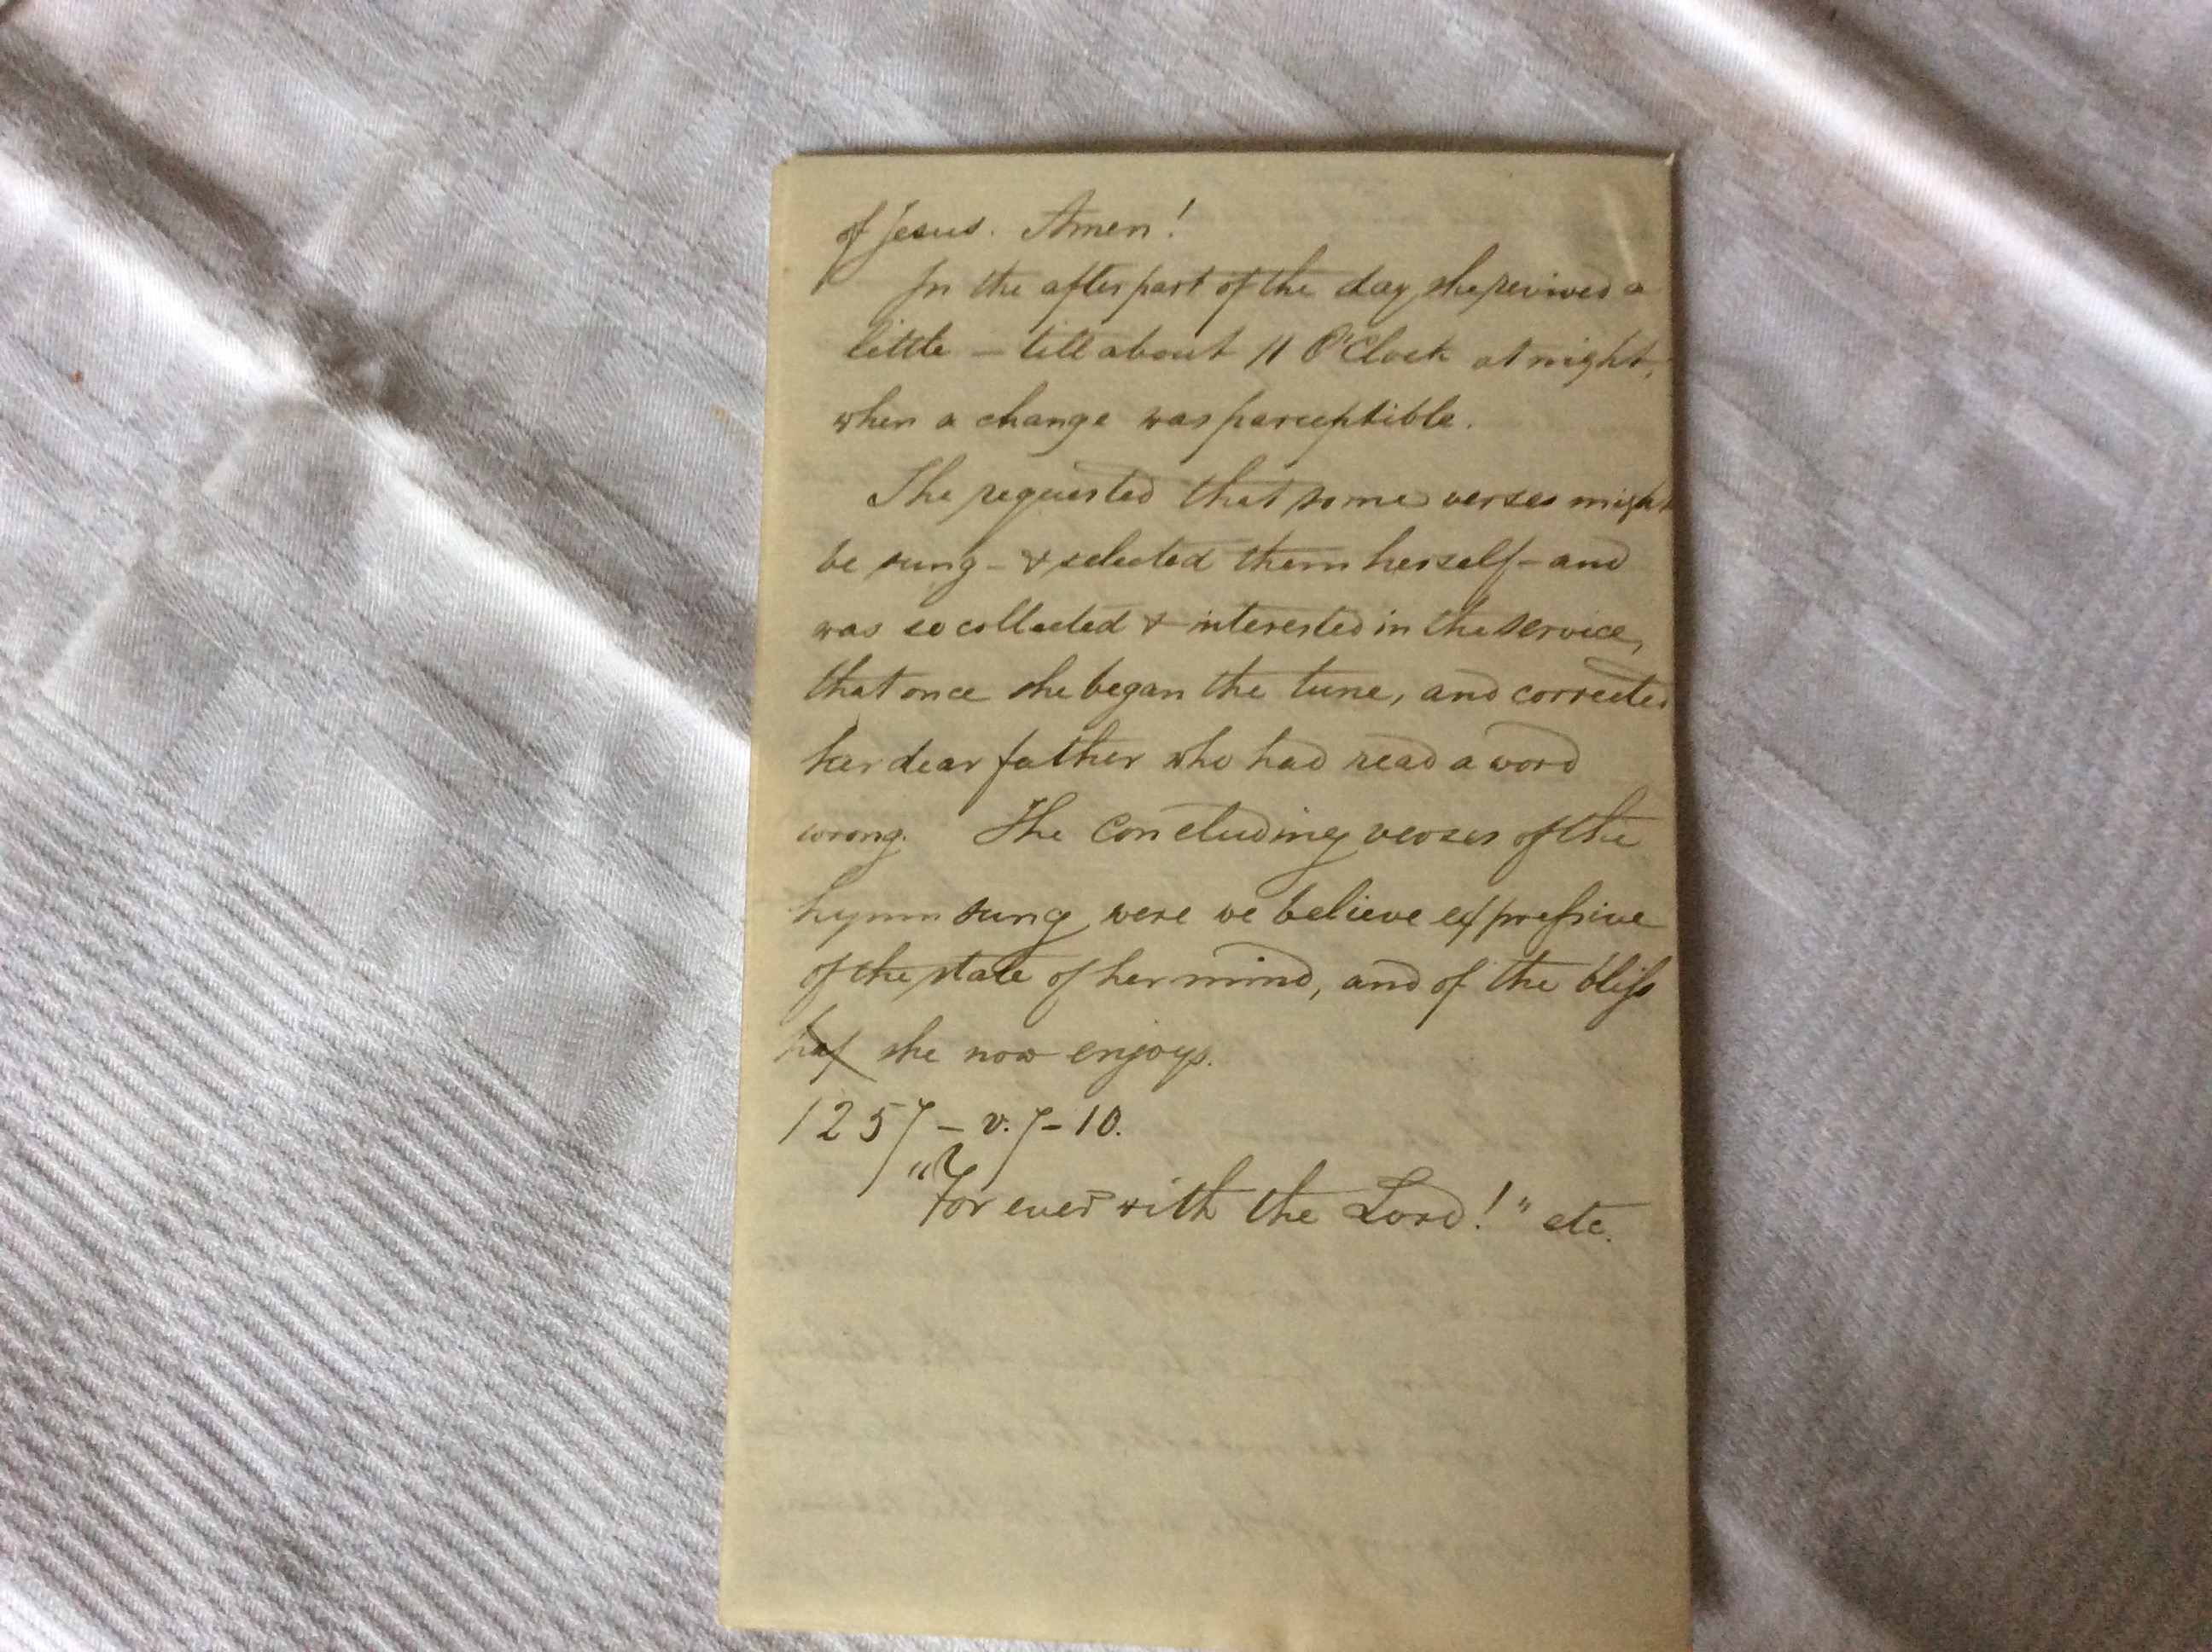 of Jesus. Amen!
In the after part of the day she revived a
little – till about 11 O'Clock at night,
when a change was parceptible.
She requested that some verses might
be sung – & selected them herself – and
was so collected & interested in the service,
that once she began the tune, and corrected
her dear father who had read a word
wrong. The concluding verses of the
hymn sung were we believe expressive
of the state of her mind, and of the bliss
she now enjoys.
1257 – v. 7 – 10.
"For ever with the Lord!" etc.